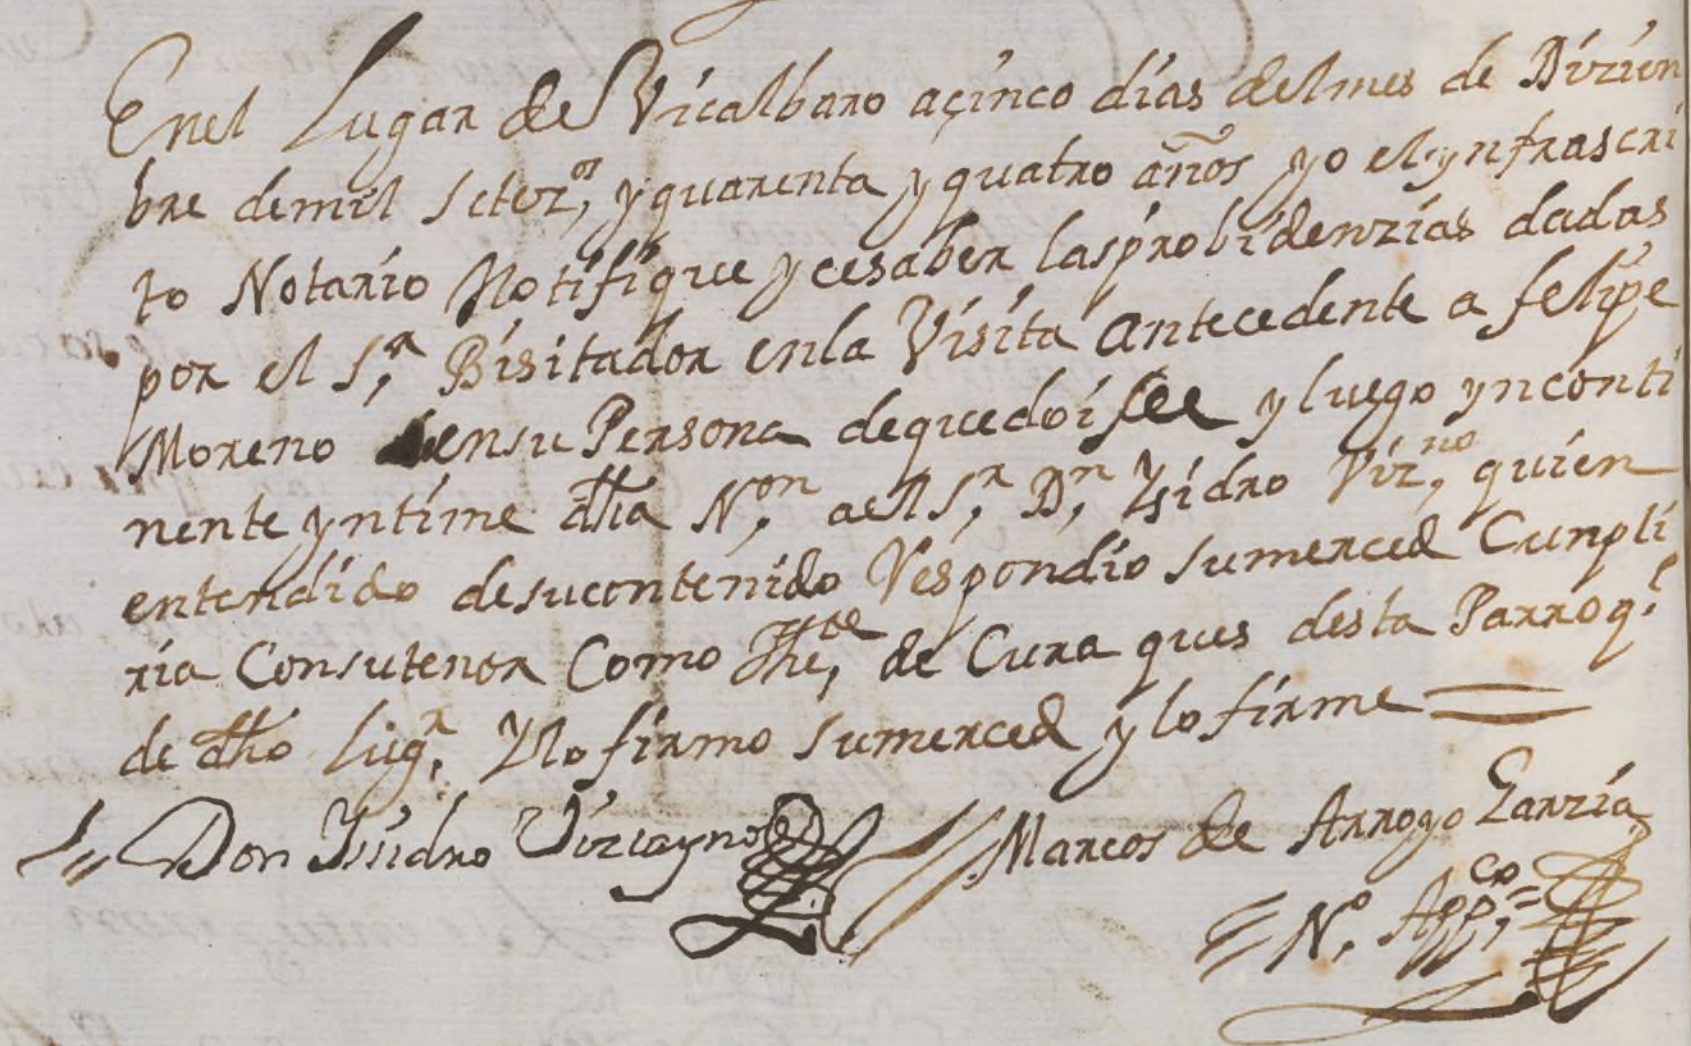 Enel Lugar de Vicalbaro açinco dias delmes de Dizien
bre demil Setez.os y quarenta y quatro años yo el ynfrascri
to Notario Notifique y cesaber lasprobidenzias dadas
por el S.r Bisitador enla Visita antecedente a felipe
Moreno ensu Persona dequedoi fee y luego ynconti
nente yntime dha N.on aelS.r D.n Ysidro Viz.no quien
entendido desucontenido Respondio sumerced Cunpli
ria Consutenor Como The.te de Cura ques desta Parroq.l
de dho lug.r Ylo firmo sumerced y lo firme =
Don Ysidro Vizcayno Marcos de Arroyo Garzia
= N.o App.co =